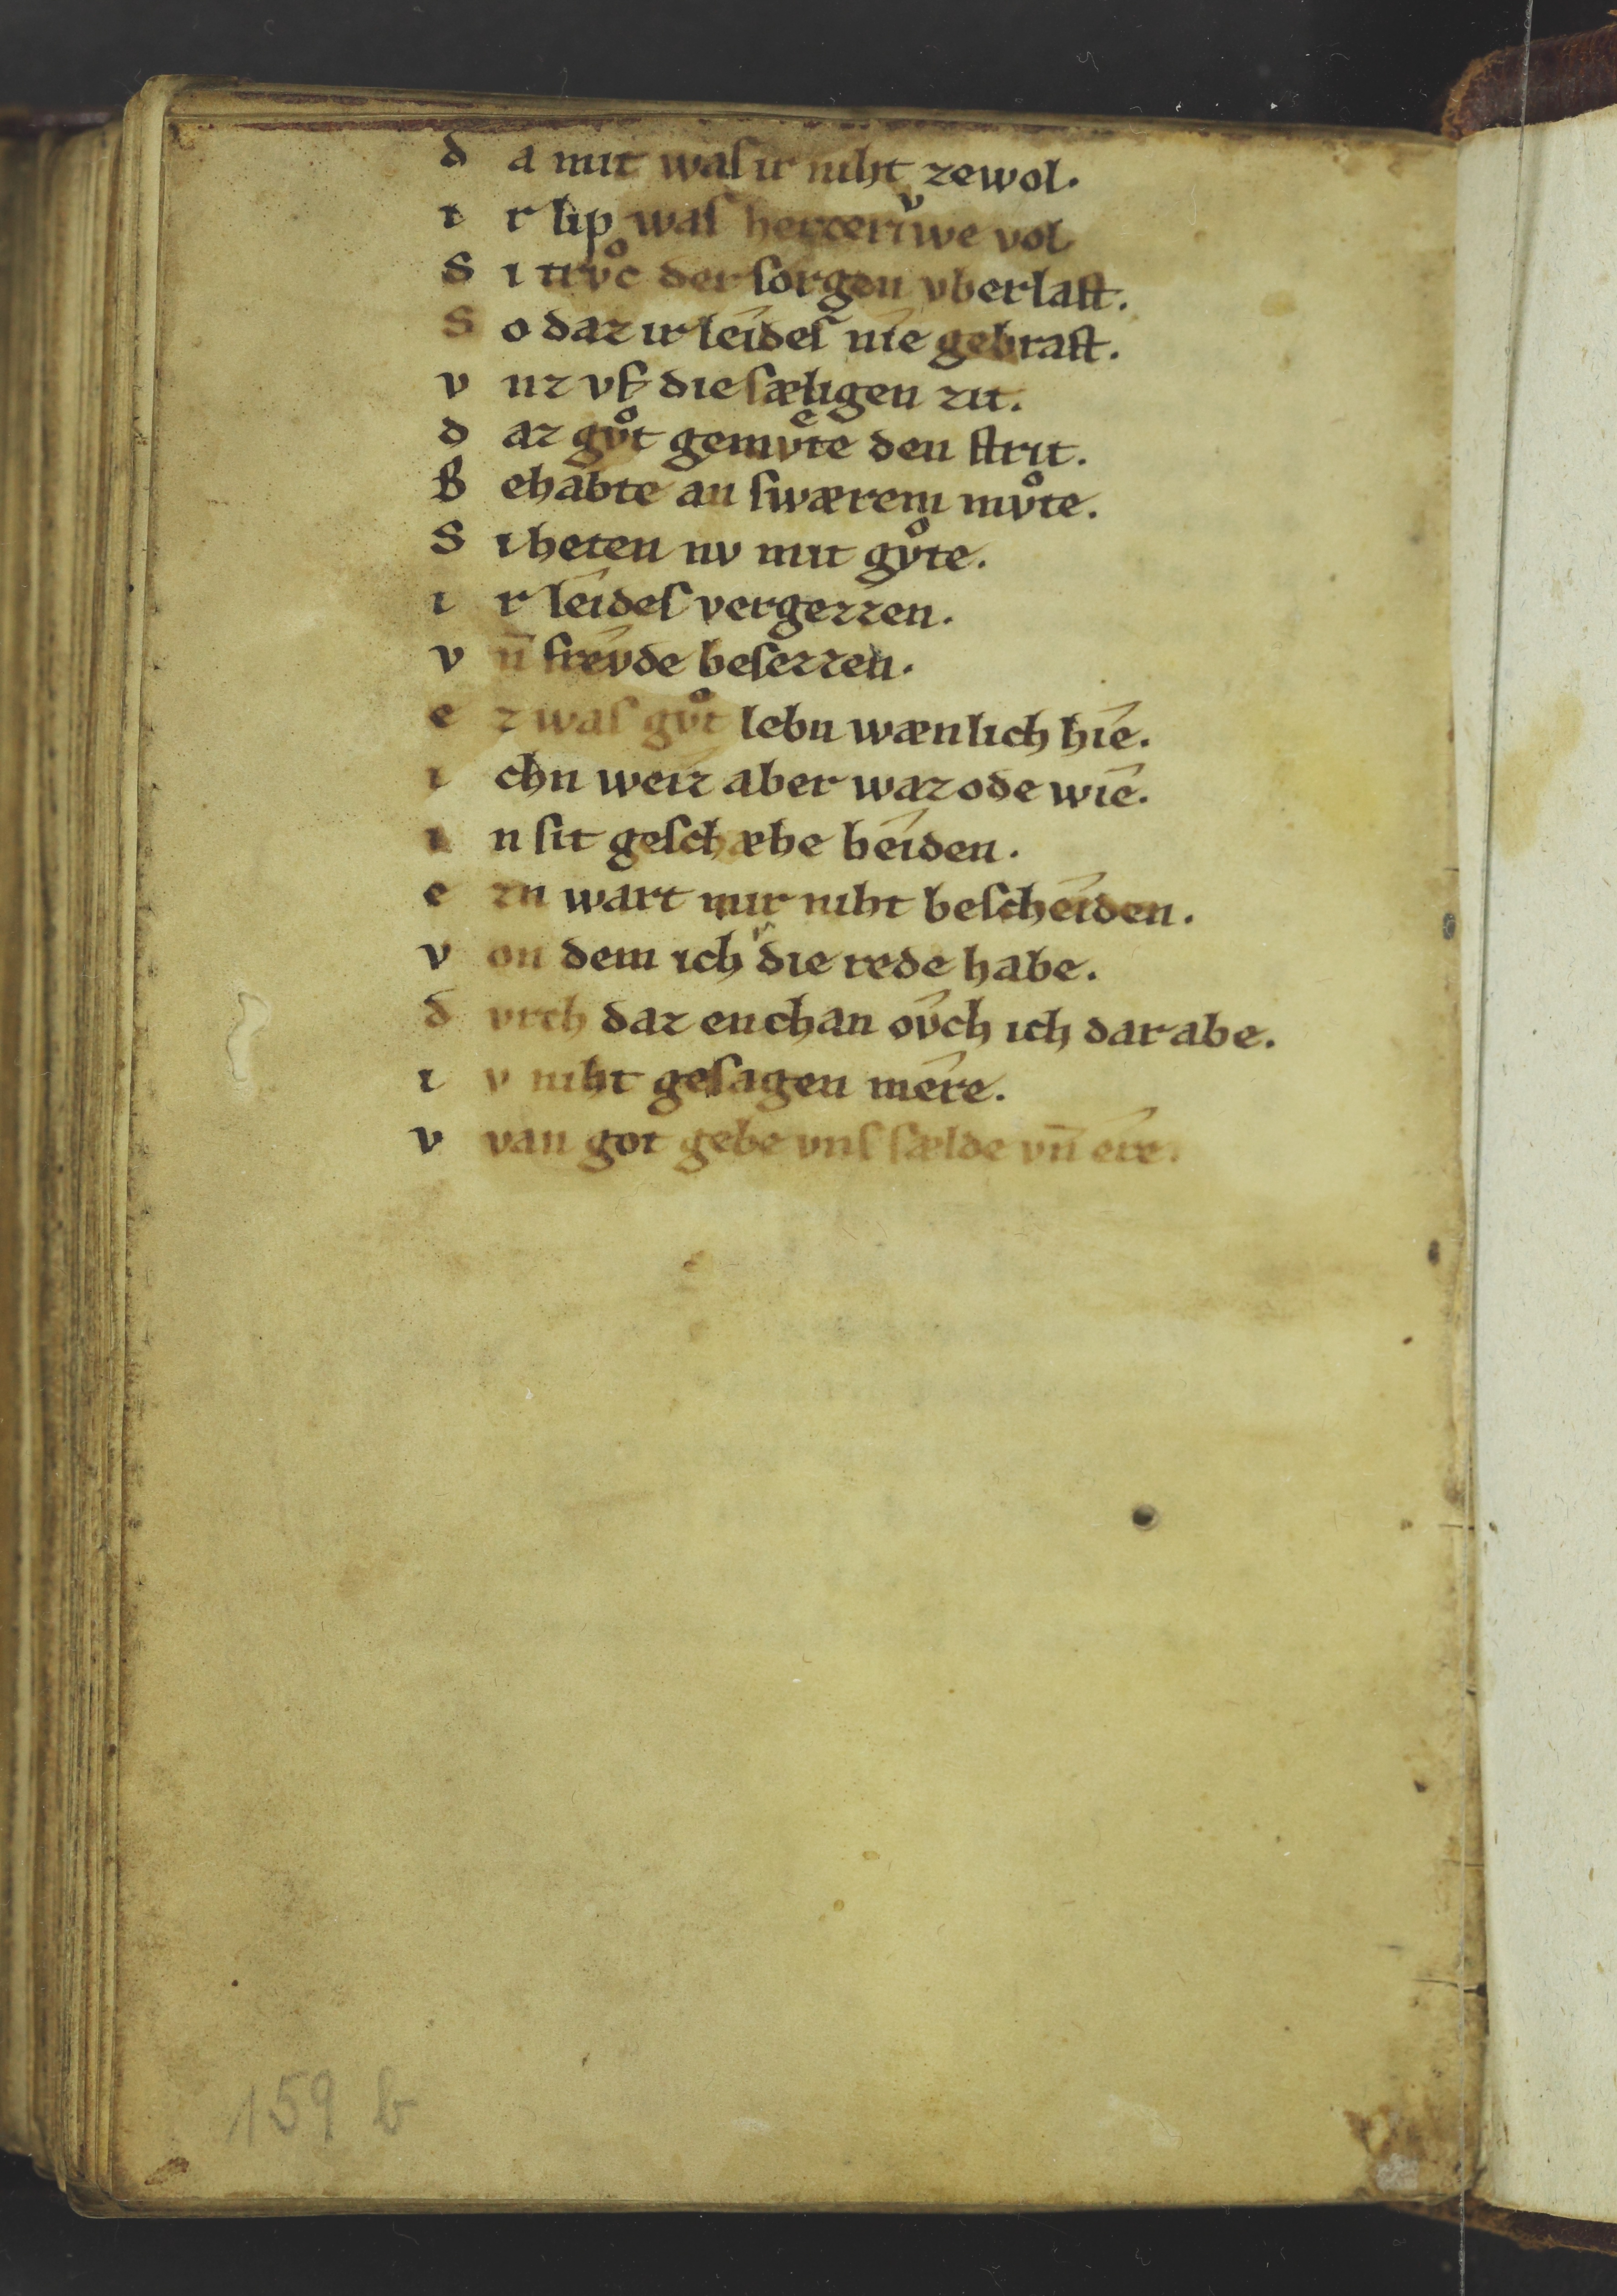 d a mit waſ ir niht zewol.
i r lip waſ hercerivͮwe vol
S i trvͦc der ſorgen vberlaſt.
S o daz ir leideſ nie gebraſt.
v nz vf die ſæligen zit.
d az gvͦt gemvͤte den ſtrit.
B ehabte an ſwærem mvͦte.
S i heten nv mit gvͦte.
i r leideſ vergezzen.
v n̄ frevde beſezzen.
e z waſ gvͦt lebn wænlich hie.
i chn weiz aber waz ode wie.
i n ſit geſchæhe beiden.
e zn wart mir niht beſcheiden.
v on dem ich die rede habe.
d vrch daz enchan ovch ich dar abe.
i v niht geſagen mêre.
v van got gebe vnſ ſælde vn̄ ere.
159 b